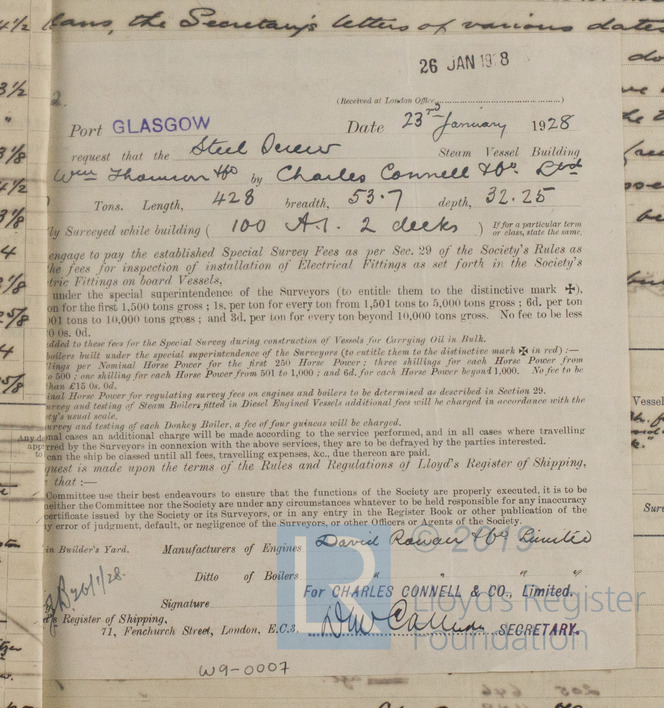 4½ Plans, the Secretary's letters of various dates
26 JAN 1928
(Received at London Office
Port GLASGOW Date 23rd January 1928
request that the Steel Screw Steam Vessel Building
Wm Thomson & Co by Charles Connell & Co Ltd
Tons. Length, 428 breadth, 53.7 depth, 32.25
ly Surveyed while building ( 100 A.1. 2 decks ) If for a particular term or class, state the same.
engage to pay the established Special Survey Fees as per Sec. 29 of the Society's Rules as
the fees for inspection of installation of Electrical Fittings as set forth in the Society's
tric Fittings on board Vessels.
under the special superintendence of the Surveyors (to entitle them to the distinctive mark ✠).
on for the first 1,500 tons gross; 1s. per ton for every ton from 1,501 tons to 5,000 tons gross; 6d. per ton
001 tons to 10,000 tons gross; and 3d. per ton for every ton beyond 10,000 tons gross. No fee to be less
0 0s. 0d.
added to these fees for the Special Survey during construction of Vessels for Carrying Oil in Bulk.
boilers built under the special superintendence of the Surveyors (to entitle them to the distinctive mark ✠ in red) :—
llings per Nominal Horse Power for the first 250 Horse Power; three shillings for each Horse Power from
to 500; one shilling for each Horse Power from 501 to 1,000; and 6d. for each Horse Power beyond 1,000. No fee to be
than £15 0s. 0d.
inal Horse Power for regulating survey fees on engines and boilers to be determined as described in Section 29.
urvey and testing of Steam Boilers fitted in Diesel Engined Vessels additional fees will be charged in accordance with the
ty's usual scale.
urvey and testing of each Donkey Boiler, a fee of four guineas will be charged.
onal cases an additional charge will be made according to the service performed, and in all cases where travelling
rred by the Surveyors in connexion with the above services, they are to be defrayed by the parties interested.
can the ship be classed until all fees, travelling expenses, &c., due thereon are paid.
quest is made upon the terms of the Rules and Regulations of Lloyd's Register of Shipping,
that :—
Committee use their best endeavours to ensure that the functions of the Society are properly executed, it is to be
neither the Committee nor the Society are under any circumstances whatever to be held responsible for any inaccuracy
certificate issued by the Society or its Surveyors, or in any entry in the Register Book or other publication of the
y error of judgment, default, or negligence of the Surveyors, or other Officers or Agents of the Society.
in Builder's Yard. Manufacturers of Engines David Rowan & Co Limited
Ditto of Boilers " " " "
For CHARLES CONNELL & CO., Limited.
Signature
SECRETARY.
's Register of Shipping,
71, Fenchurch Street, London, E.C.3.
W9-0007
Vessel
Sur
LR
© 2019
Lloyd's Register
Foundation